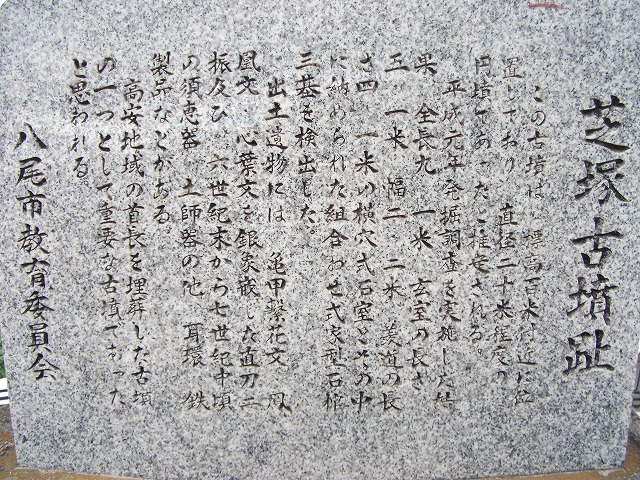 芝塚古墳趾
この古墳は、標高百米付近に位
置しており、直径二十米程度の
円墳であったと推定される。
平成元年発掘調査を実施した結
果、全長九・一米、玄室の長さ
五・一米、幅二・二米、羨道の長
さ四・一米の横穴式石室とその中
に納められた組合わせ式家型石棺
三基を検出した。
出土遺物には、亀甲繋花文、鳳
凰文、心葉文を銀象嵌した直刀二
振及び、六世紀末から七世紀中頃
の須恵器、土師器の他、耳環、鉄
製品などがある。
高安地域の首長を埋葬した古墳
の一つとして重要な古墳であった
と思われる。
八尾市教育委員会